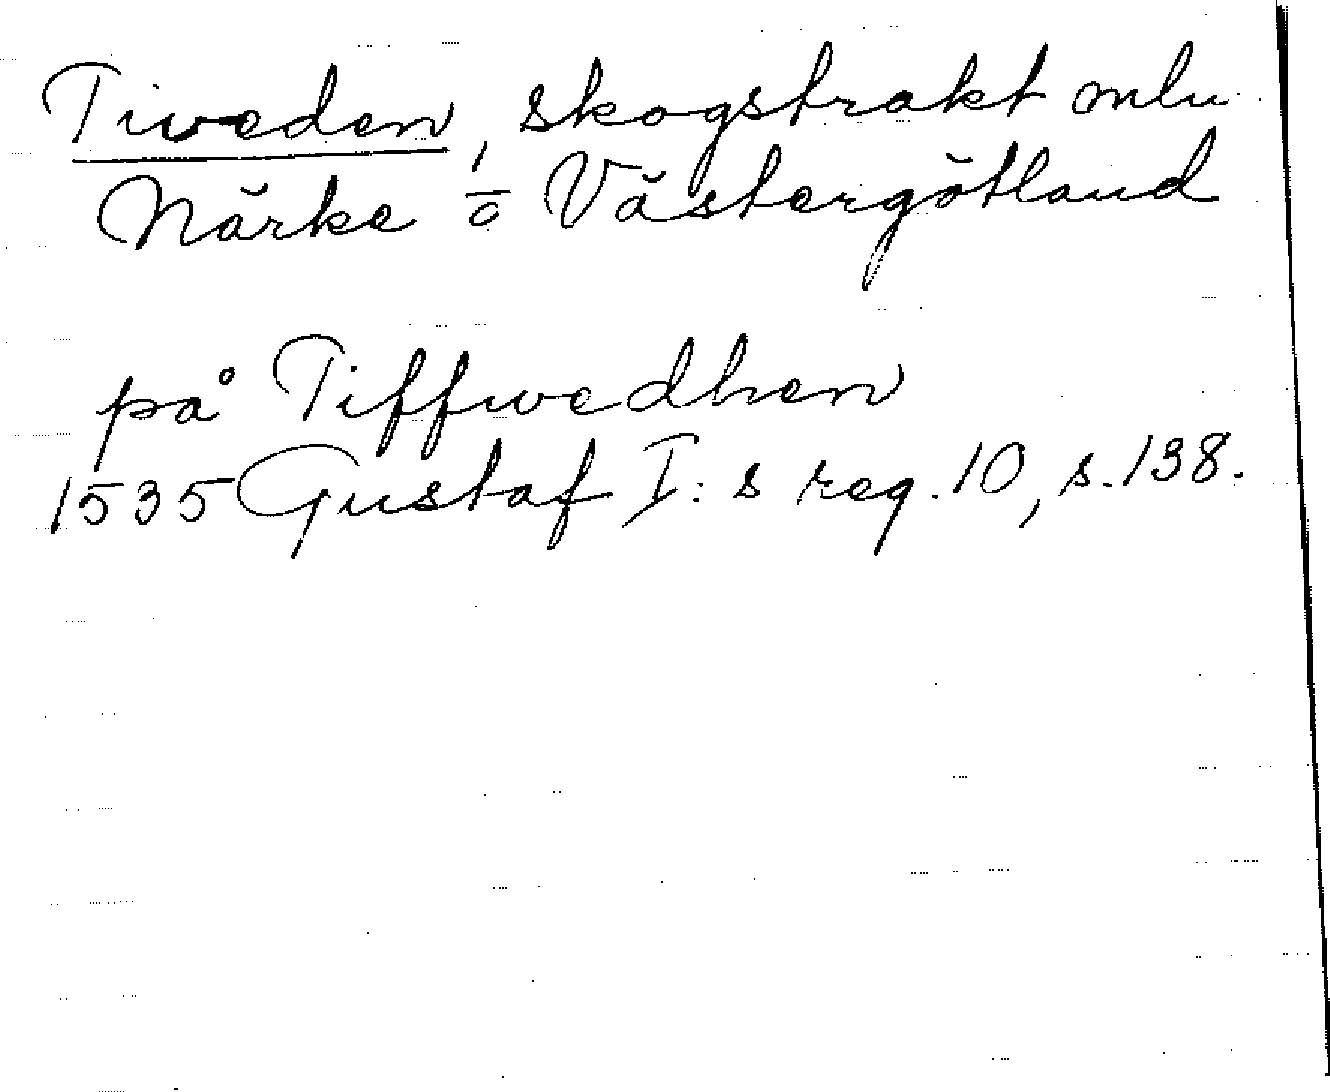 Tiveden, skogstrakt mlu
Närke o Västergötland
på Tiffwedhen
1535 Gustaf I:s reg. 10, s. 138.